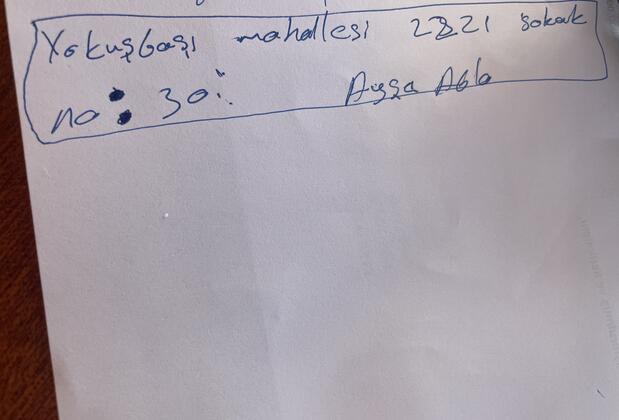 Yokuşbaşı mahallesi 2821 sokak
no: 30
Ayşa Abla